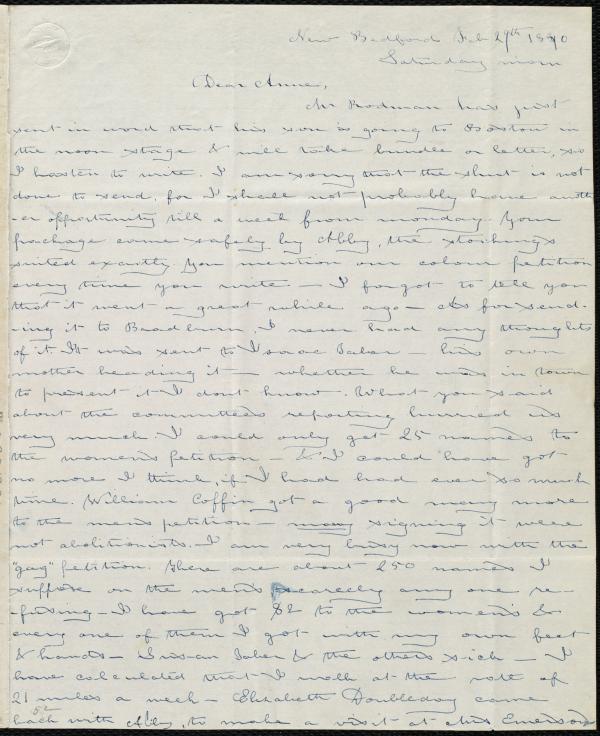 New Bedford Feb 29th 1840
Saturday morn
Dear Anne,
Mr Rodman has just
sent in word that his son is going to Boston in
the noon stage & will take bundle or letter, so
I hasten to write. I am sorry that the shirt is not
done to send, for I shall not probably have anoth
-er opportunity till a week from monday. Your
package came safely by Abby, the stockings
suited exactly You mention our colour petition
every time you write — I forgot to tell you
that it went a great while ago — As for send-
-ing it to Bradburn, I never had any thoughts
of it. It was sent to Isaac Taber — his own
mother heading it — whether he was in town
to present it I dont know. What you said
about the committee's reporting hurried us
very much I could only get 25 names to
the women's petition — & I could have got
no more I think, if I had had ever so much
time. William Coffin got a good many more
to the men's petition — many signing it were
not abolitionists. I am very busy now with the
"gag" petition. There are about 250 names I
suppose on the men's scarcely any one re-
-fusing — I have got 82 to the women's &
every one of them I got with my own feet
& hands — Susan Taber & the others sick — I
have calculated that I walk at the rate of
21 miles a week — Elizabeth Doubleday came
back with Abby, to make a visit at Mrs Emerson's
52